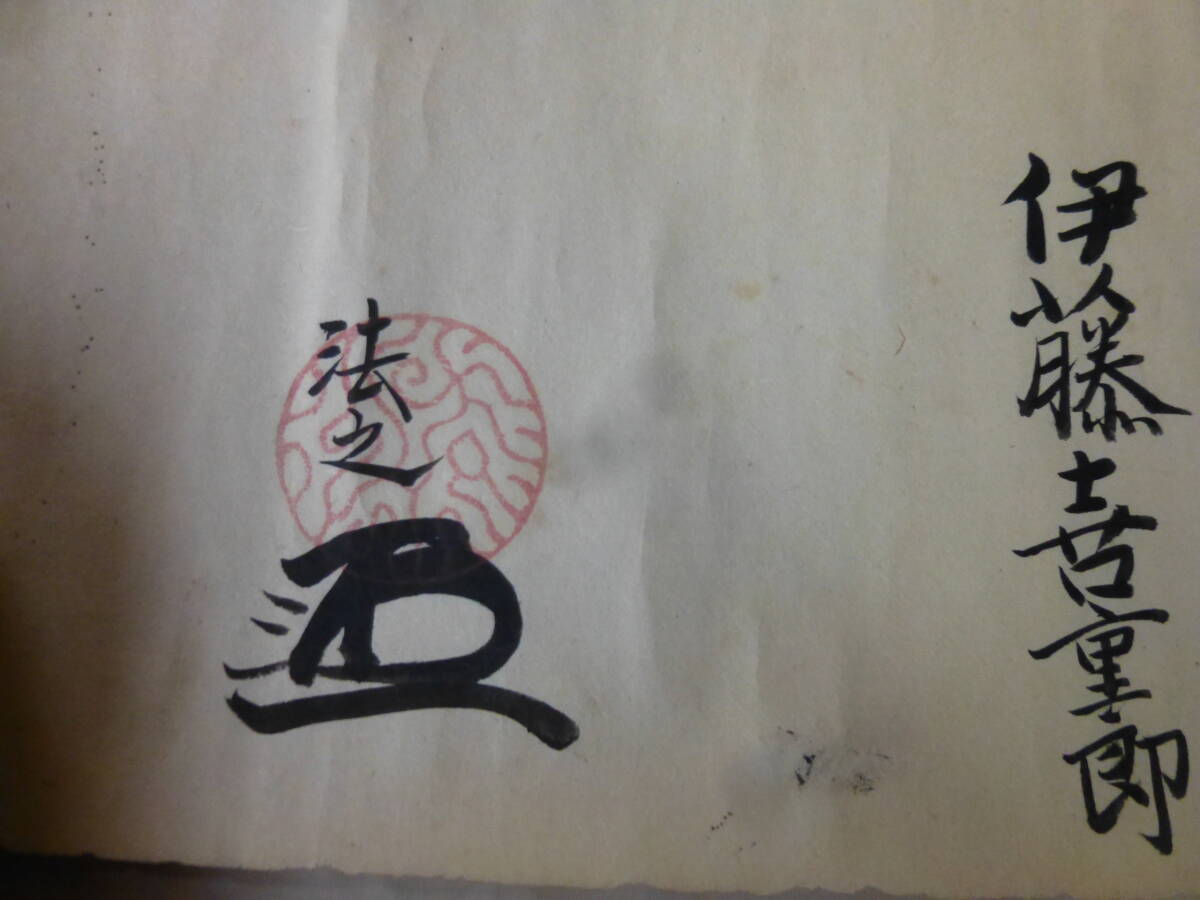 伊藤喜重郎
法之